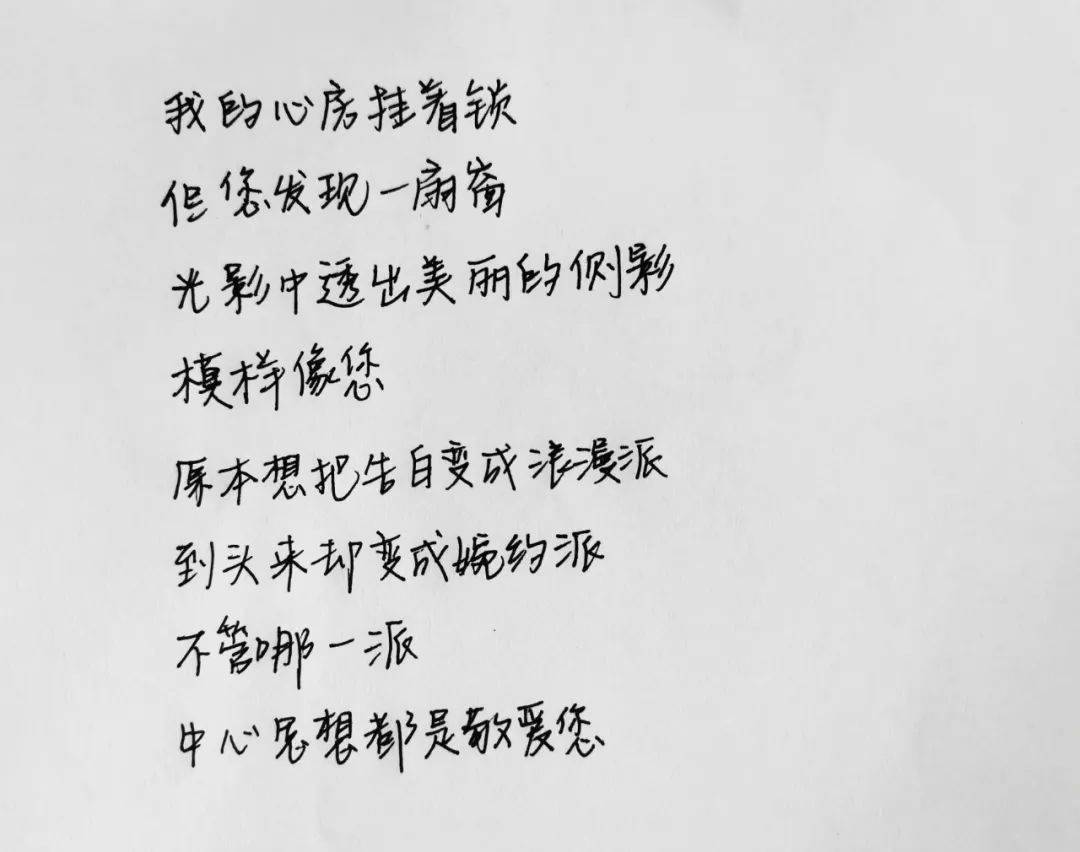 我的心房挂着锁
但您发现一扇窗
光影中透出美丽的侧影
模样像您
原本想把告白变成浪漫派
到头来却变成婉约派
不管哪一派
中心思想都是敬爱您